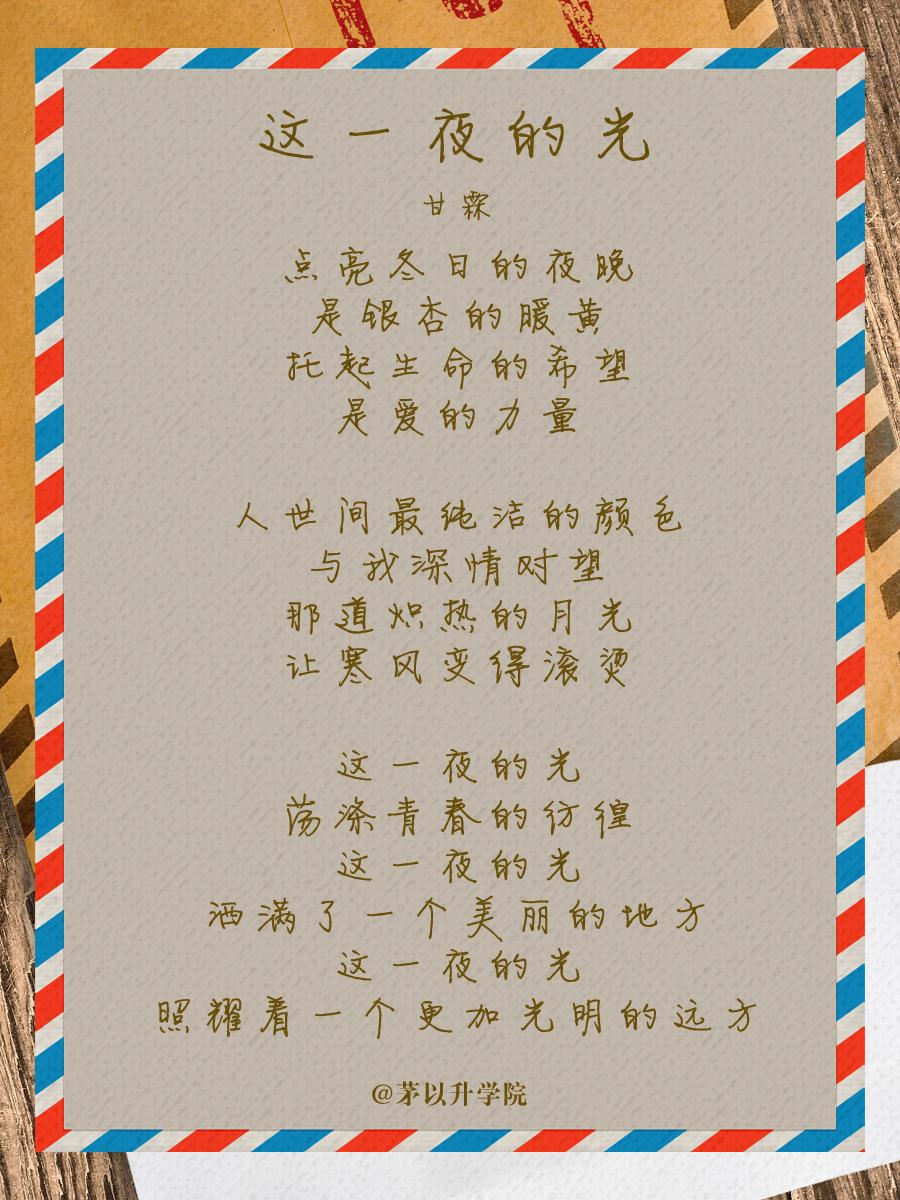 这一夜的光
甘霖
点亮冬日的夜晚
是银杏的暖黄
托起生命的希望
是爱的力量
人世间最纯洁的颜色
与我深情对望
那道炽热的月光
让寒风变得滚烫
这一夜的光
荡涤青春的彷徨
这一夜的光
洒满了一个美丽的地方
这一夜的光
照耀着一个更加光明的远方
@茅以升学院